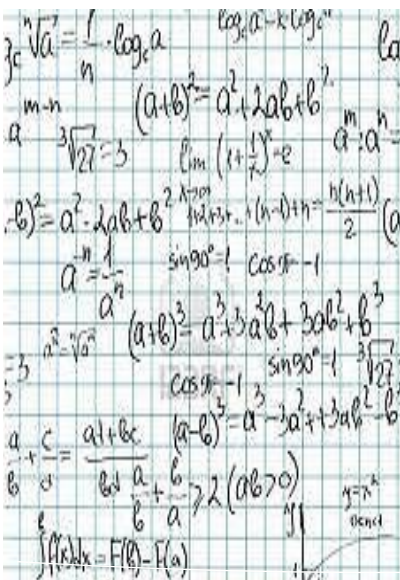 log_c ⁿ√a = 1/n · log_c a
(a+b)² = a² + 2ab + b²
a^(m-n)
³√27 = 3
lim x→∞ (1 + 1/x)^x = e
a^m : a^n =
-b)² = a² - 2ab + b²
1+2+3+...+(n-1)+n = n(n+1)/2
a^-n = 1/a^n
sin90° = 1 cosπ = -1
(a+b)³ = a³ + 3a²b + 3ab² + b³
= 3
sin90° = 1 ³√27
cosπ = -1
(a-b)³ = a³ - 3a² + + 3ab² - b³
a/b + c/d = ad + bc / bd
a/b + b/a ≥ 2 (ab > 0)
∫f(x)dx = F(b) - F(a)